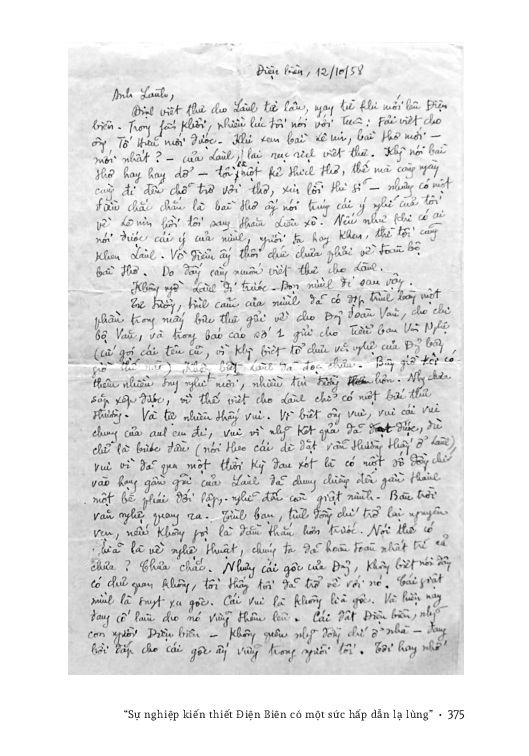 Điện biên, 12/10/58
Anh Lành,
Định viết thư cho Lành từ lâu, ngay từ khi mới lên Điện
biên. Trong , nhiều lúc tôi nói với : Fải viết cho
ông Tố Hữu mới được. Khi xem bài , bài thơ mới –
mới nhất? – của Lành, lại rục rịch viết thư. Không nói bài
thơ hay hay dở – tôi một kẻ thích thơ, thế mà càng ngày
càng đi đến chỗ trơ với thơ, xin lỗi thi sĩ – nhưng có một
điều chắc chắn là bài thơ ấy nói trúng cái ý nghĩ của tôi
về Lênin hồi tôi sang thăm Liên xô. Nếu như khi có ai
nói được cái ý của mình, người ta hay khen, thì tôi cũng
khen Lành. Về điểm ấy thôi chứ chưa phải về toàn bộ
bài thơ. Do đấy càng muốn viết thư cho Lành.
Không ngờ Lành đi trước. Bọn mình đi sau vậy.
Tư tưởng, tình cảm của mình đã có dịp trình bày một
phần trong mấy bức thư gửi về cho Đ/c Đoàn Văn, cho chi
bộ Văn, và trong báo cáo số 1 gửi cho tiểu ban Văn Nghệ
(cứ gọi cái tên cũ, vì không biết tổ chức văn nghệ của Đ/g bây
giờ thế nào) không biết Lành đã đọc chưa. Bây giờ có
thêm nhiều suy nghĩ mới, nhiều tư hơn. Nhg chưa
sắp xếp được, vì thế viết cho Lành chỉ có một bức thư
thường. Và tự nhiên thấy vui. Vì biết ông vui, vui cái vui
chung của anh em đi, vui vì những kết quả đã đạt được, dù
chỉ là bước đầu (nói theo cái dè dặt vẫn thường thấy ở Lành)
vui vì đã qua một thời kỳ đau xót là có một số đồng chí
vào hàng gần gũi của Lành đã dung chúng đến gần thành
một bè phái đối lập. nghĩ đến còn giật mình. Bầu trời
văn nghệ quang ra. Tình bạn, tình đồng chí trở lại nguyên
vẹn, nếu không gọi là đằm thắm hơn trước. Nói thế có
là về nghệ thuật, chúng ta đã hoàn toàn nhất trí cả
chưa? Chưa chắc. Nhưng cái gốc của Đ/g, không biết nói đây
có chủ quan không, tôi thấy tôi đã trở về với nó. Cái giật
mình là suýt xa gốc. Cái vui là không lìa gốc. Và hiện nay
đang cố làm cho nó vững thêm lên. Cái đất Điện biên, những
con người Điện biên – không quên những đồng chí ở nhà – đang
bồi đắp cho cái gốc ấy vững trong người tôi. Tôi hay nhớ
“Sự nghiệp kiến thiết Điện Biên có một sức hấp dẫn lạ lùng” • 375